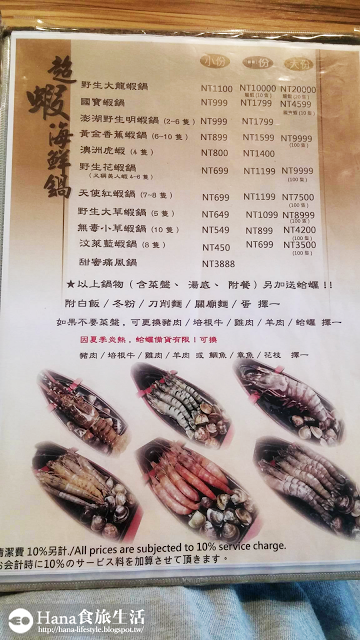 超蝦海鮮鍋
小份 一份 大份
野生大龍蝦鍋 NT1100 NT10000 NT20000
國寶蝦鍋 NT999 NT1799 NT4599
澎湖野生明蝦鍋 (2-6隻) NT999 NT1799
黃金香蕉蝦鍋 (6-10隻) NT899 NT1599 NT9999
(100隻)
澳洲虎蝦 (4隻) NT800 NT1400
野生花蝦鍋 NT699 NT1199 NT9999
(100隻)
天使紅蝦鍋 (7-8隻) NT699 NT1199 NT7500
(100隻)
野生大草蝦鍋 (5隻) NT649 NT1099 NT8999
(100隻)
無毒小草蝦鍋 (10隻) NT549 NT899 NT4200
(100隻)
汶萊藍蝦鍋 (8隻) NT450 NT699 NT3500
(100隻)
甜蜜痛風鍋 NT3888
★以上鍋物(含菜盤、湯底、附餐)另加送蛤蠣!!
附白飯/冬粉/刀削麵/關廟麵/蛋 擇一
如果不要菜盤,可更換豬肉/培根牛/雞肉/羊肉/蛤蠣 擇一
因夏季炎熱,蛤蠣備貨有限!可換
豬肉/培根牛/雞肉/羊肉 或 鯛魚/章魚/花枝 擇一
清潔費 10%另計./All prices are subjected to 10% service charge.
お会計時に10%のサービス料を加算させて頂きます。
Hana食旅生活
http://hana-lifestyle.blogspot.tw